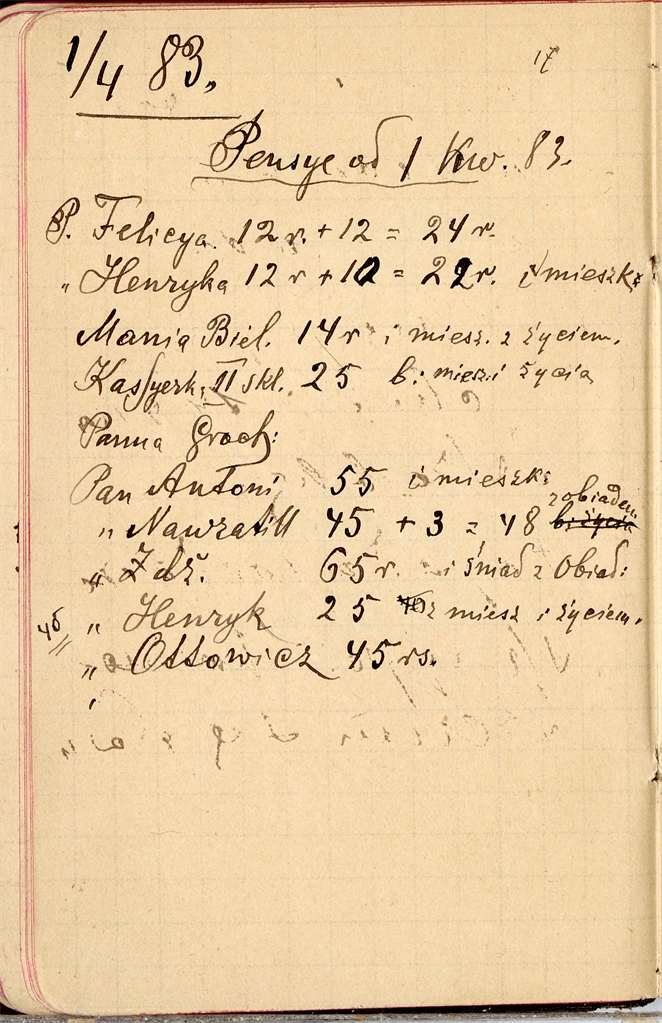 1/4 83.
17
Pensye od 1 Kw. 83.
P. Felicya 12 r. + 12 = 24 r.
„ Henryka 12 r + 10 = 22 r. i mieszk:
Mania Biel. 14 r i miesz. z życiem.
Kassyerk. II skl. 25 b: miesz i życia
Panna Groch:
Pan Antoni 55 i mieszk:
„ Nawratill 45 + 3 = 48 z obiadem
„ Zdz. 65 r. i śniad z Obiad:
„ Henryk 25 z miesz i życiem.
„ Ottowicz 45 rs.
„